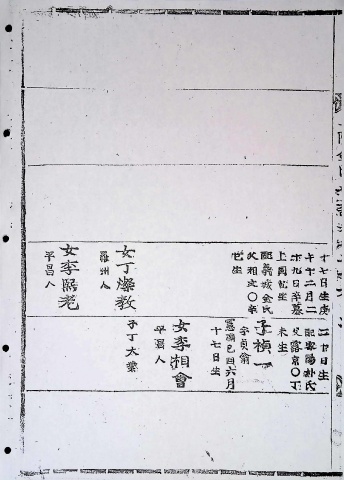 十七日生庚
午十二月二
十九日卒墓
上同 坐
配義城金氏
父相定○辛
巳生
女丁燦敎
羅州人
女李熙老
平昌人
二十日生
配密陽朴氏
父 京○丁
未生
子楨一
字貞
己酉六月
十七日生
女李相會
平昌人
子丁大業